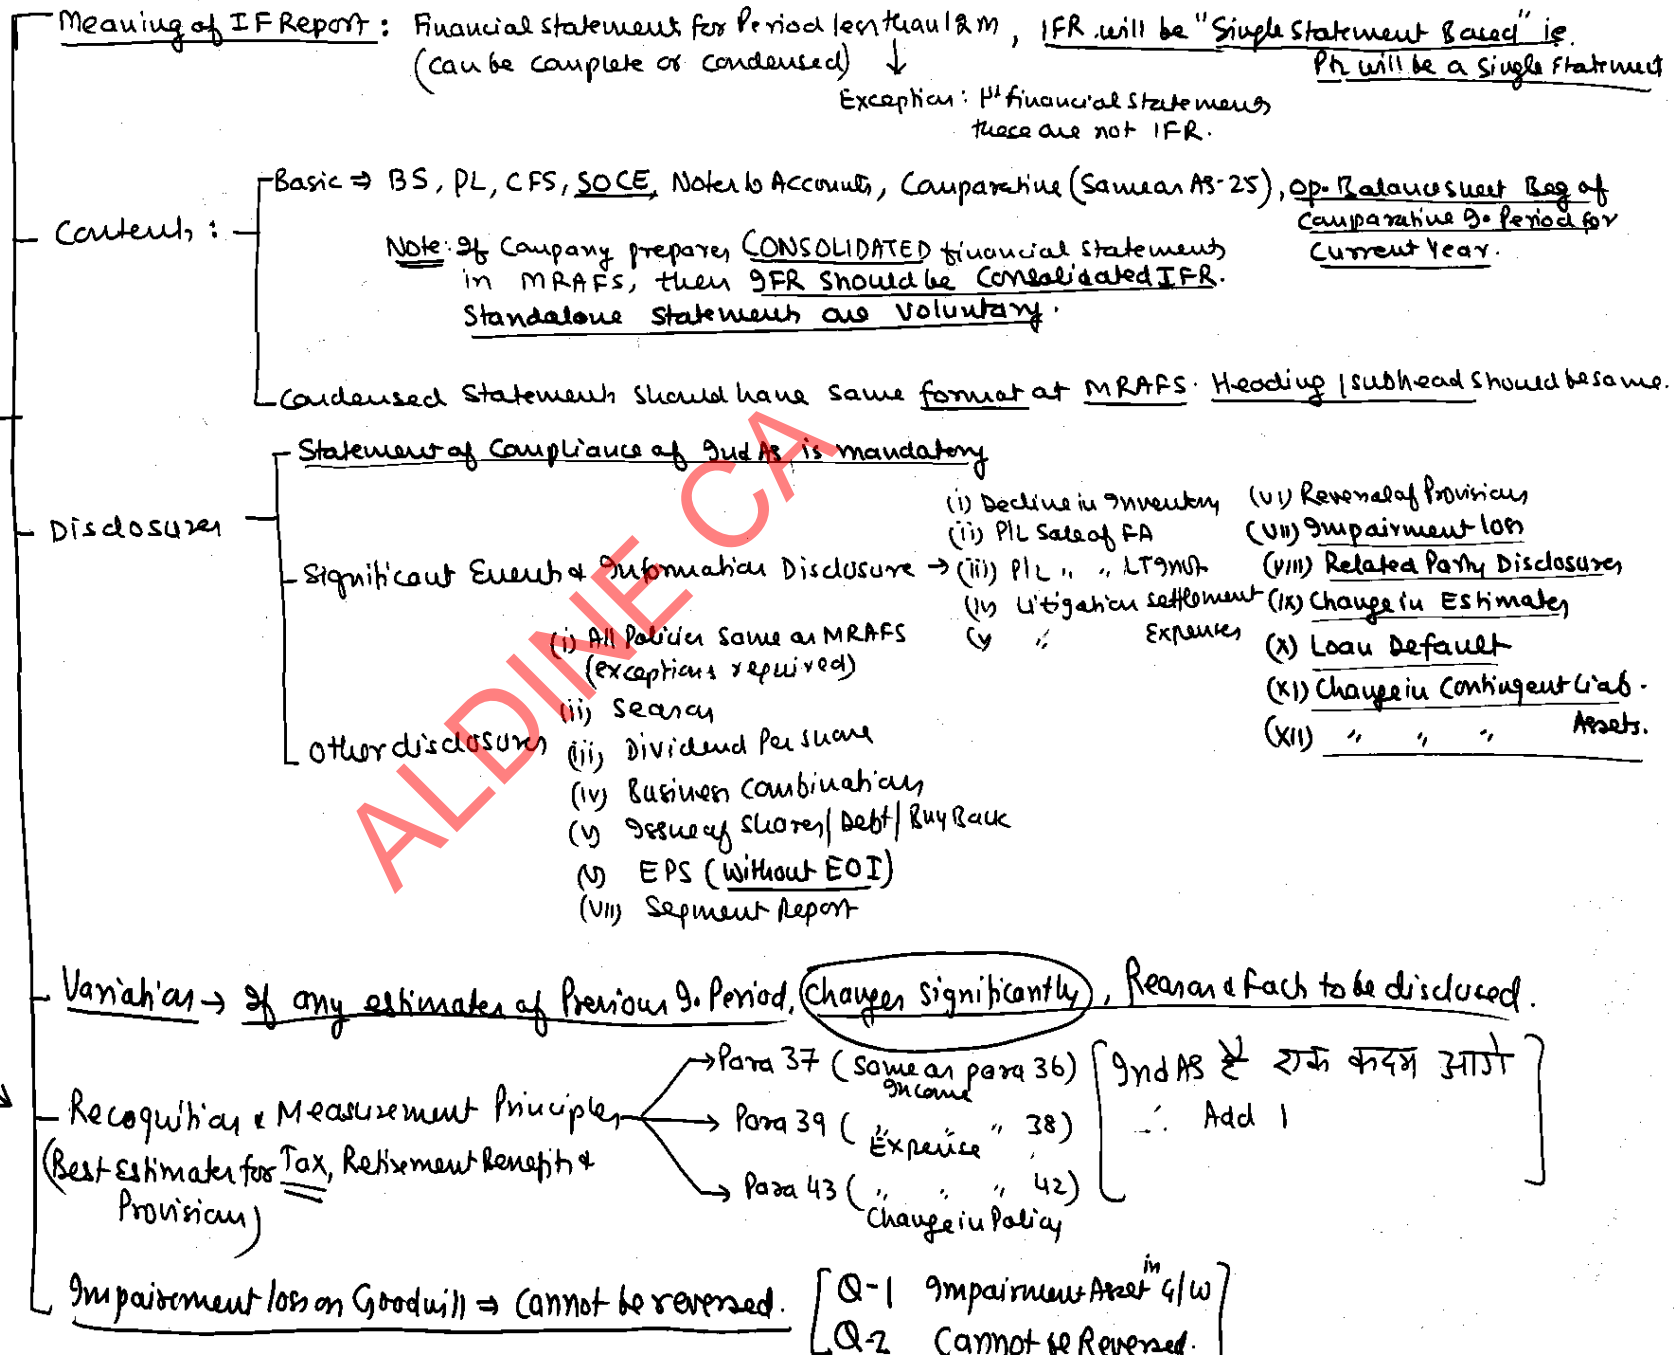 Meaning of IF Report : Financial statement for Period less than 12 m, IFR will be "Single Statement Based" ie.
(can be complete or condensed)
P/L will be a single statement
Exception : 1st financial statements
these are not IFR.
Contents :
Basic ⇒ BS, PL, CFS, SOCE, Notes to Accounts, Comparative (Same as AS-25), Op. Balance sheet Beg of
Comparative I. Period for
Current Year.
Note: If Company prepares CONSOLIDATED financial statements
in MRAFS, then IFR should be Consolidated IFR.
Standalone statements are voluntary.
Condensed statements should have same format at MRAFS. Heading / subhead should be same.
Disclosures
Statement of Compliance of Ind AS is mandatory
Significant Event & Information Disclosure →
(i) Decline in Inventory
(ii) P/L Sale of FA
(iii) P/L " " LT Invt
(iv) Litigation settlement
(v) " Expenses
(VI) Reversal of Provisions
(VII) Impairment loss
(VIII) Related Party Disclosures
(IX) Change in Estimates
(X) Loan Default
(XI) Change in Contingent Liab.
(XII) " " " Assets.
Other disclosures
(i) All Policies same as MRAFS
(exceptions required)
(ii)
(iii) Dividend Per share
(iv) Business Combinations
(v) Issue of shares/Debt/Buy Back
(v) EPS (without EOI)
(VII) Segment Report
ALDINE CA
Variations → If any estimates of Previous I. Period, changes significantly, Reason & fact to be disclosed.
Recognition & Measurement Principles
(Best Estimates for Tax, Retirement Benefits &
Provisions)
→ Para 37 (Same as para 36)
Income
→ Para 39 ( " " " 38)
Expense
→ Para 43 ( " " " 42)
Change in Policy
Ind AS है एक कदम आगे
∴ Add 1
Impairement loss on Goodwill ⇒ Cannot be reversed.
Q-1 Impairment Asset in G/W
Q-2 Cannot be Reversed.